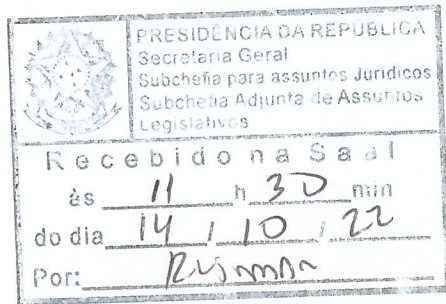 PRESIDÊNCIA DA REPÚBLICA
Secretaria Geral
Subchefia para assuntos Jurídicos
Subchefia Adjunta de Assuntos
Legislativos
Recebido na Saal
às 11 h 30 min
do dia 14 / 10 / 22
Por: